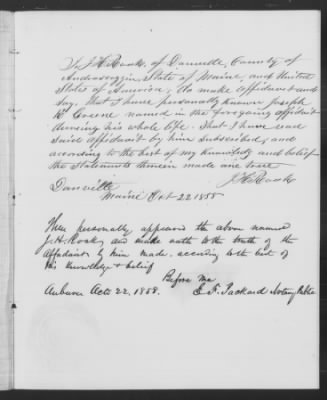 I, J H Rook, of Danville, County of
Androscoggin State of Maine, and United
States of America, do make affidavit and
say. That I have personally known Joseph
K Greene named in the foregoing affidavit
during his whole life. That I have read
said affidavit by him subscribed, and
according to the best of my knowledge and belief
the statements therein made are true
J H Rook
Danville
Maine Oct 22 1858
Then personally appeared the above named
J. H. Rook, and made oath to the truth of the
affidavit by him made. according to the best of
his knowledge & belief
Before me
Auburn Oct 22. 1858. E. F. Packard Notary Public